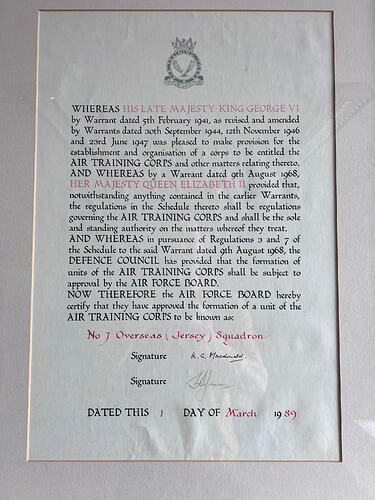 WHEREAS HIS LATE MAJESTY KING GEORGE VI
by Warrant dated 5th February 1941, as revised and amended
by Warrants dated 30th September 1944, 12th November 1946
and 23rd June 1947 was pleased to make provision for the
establishment and organisation of a corps to be entitled the
AIR TRAINING CORPS and other matters relating thereto.
AND WHEREAS by a Warrant dated 9th August 1968,
HER MAJESTY QUEEN ELIZABETH II provided that,
notwithstanding anything contained in the earlier Warrants,
the regulations in the Schedule thereto shall be regulations
governing the AIR TRAINING CORPS and shall be the sole
and standing authority on the matters whereof they treat.
AND WHEREAS in pursuance of Regulations 3 and 7 of
the Schedule to the said Warrant dated 9th August 1968, the
DEFENCE COUNCIL has provided that the formation of
units of the AIR TRAINING CORPS shall be subject to
approval by the AIR FORCE BOARD.
NOW THEREFORE the AIR FORCE BOARD hereby
certify that they have approved the formation of a unit of the
AIR TRAINING CORPS to be known as:
No 7 Overseas (Jersey) Squadron
Signature K. C. Macdonald.
Signature
DATED THIS 1 DAY OF March 1989